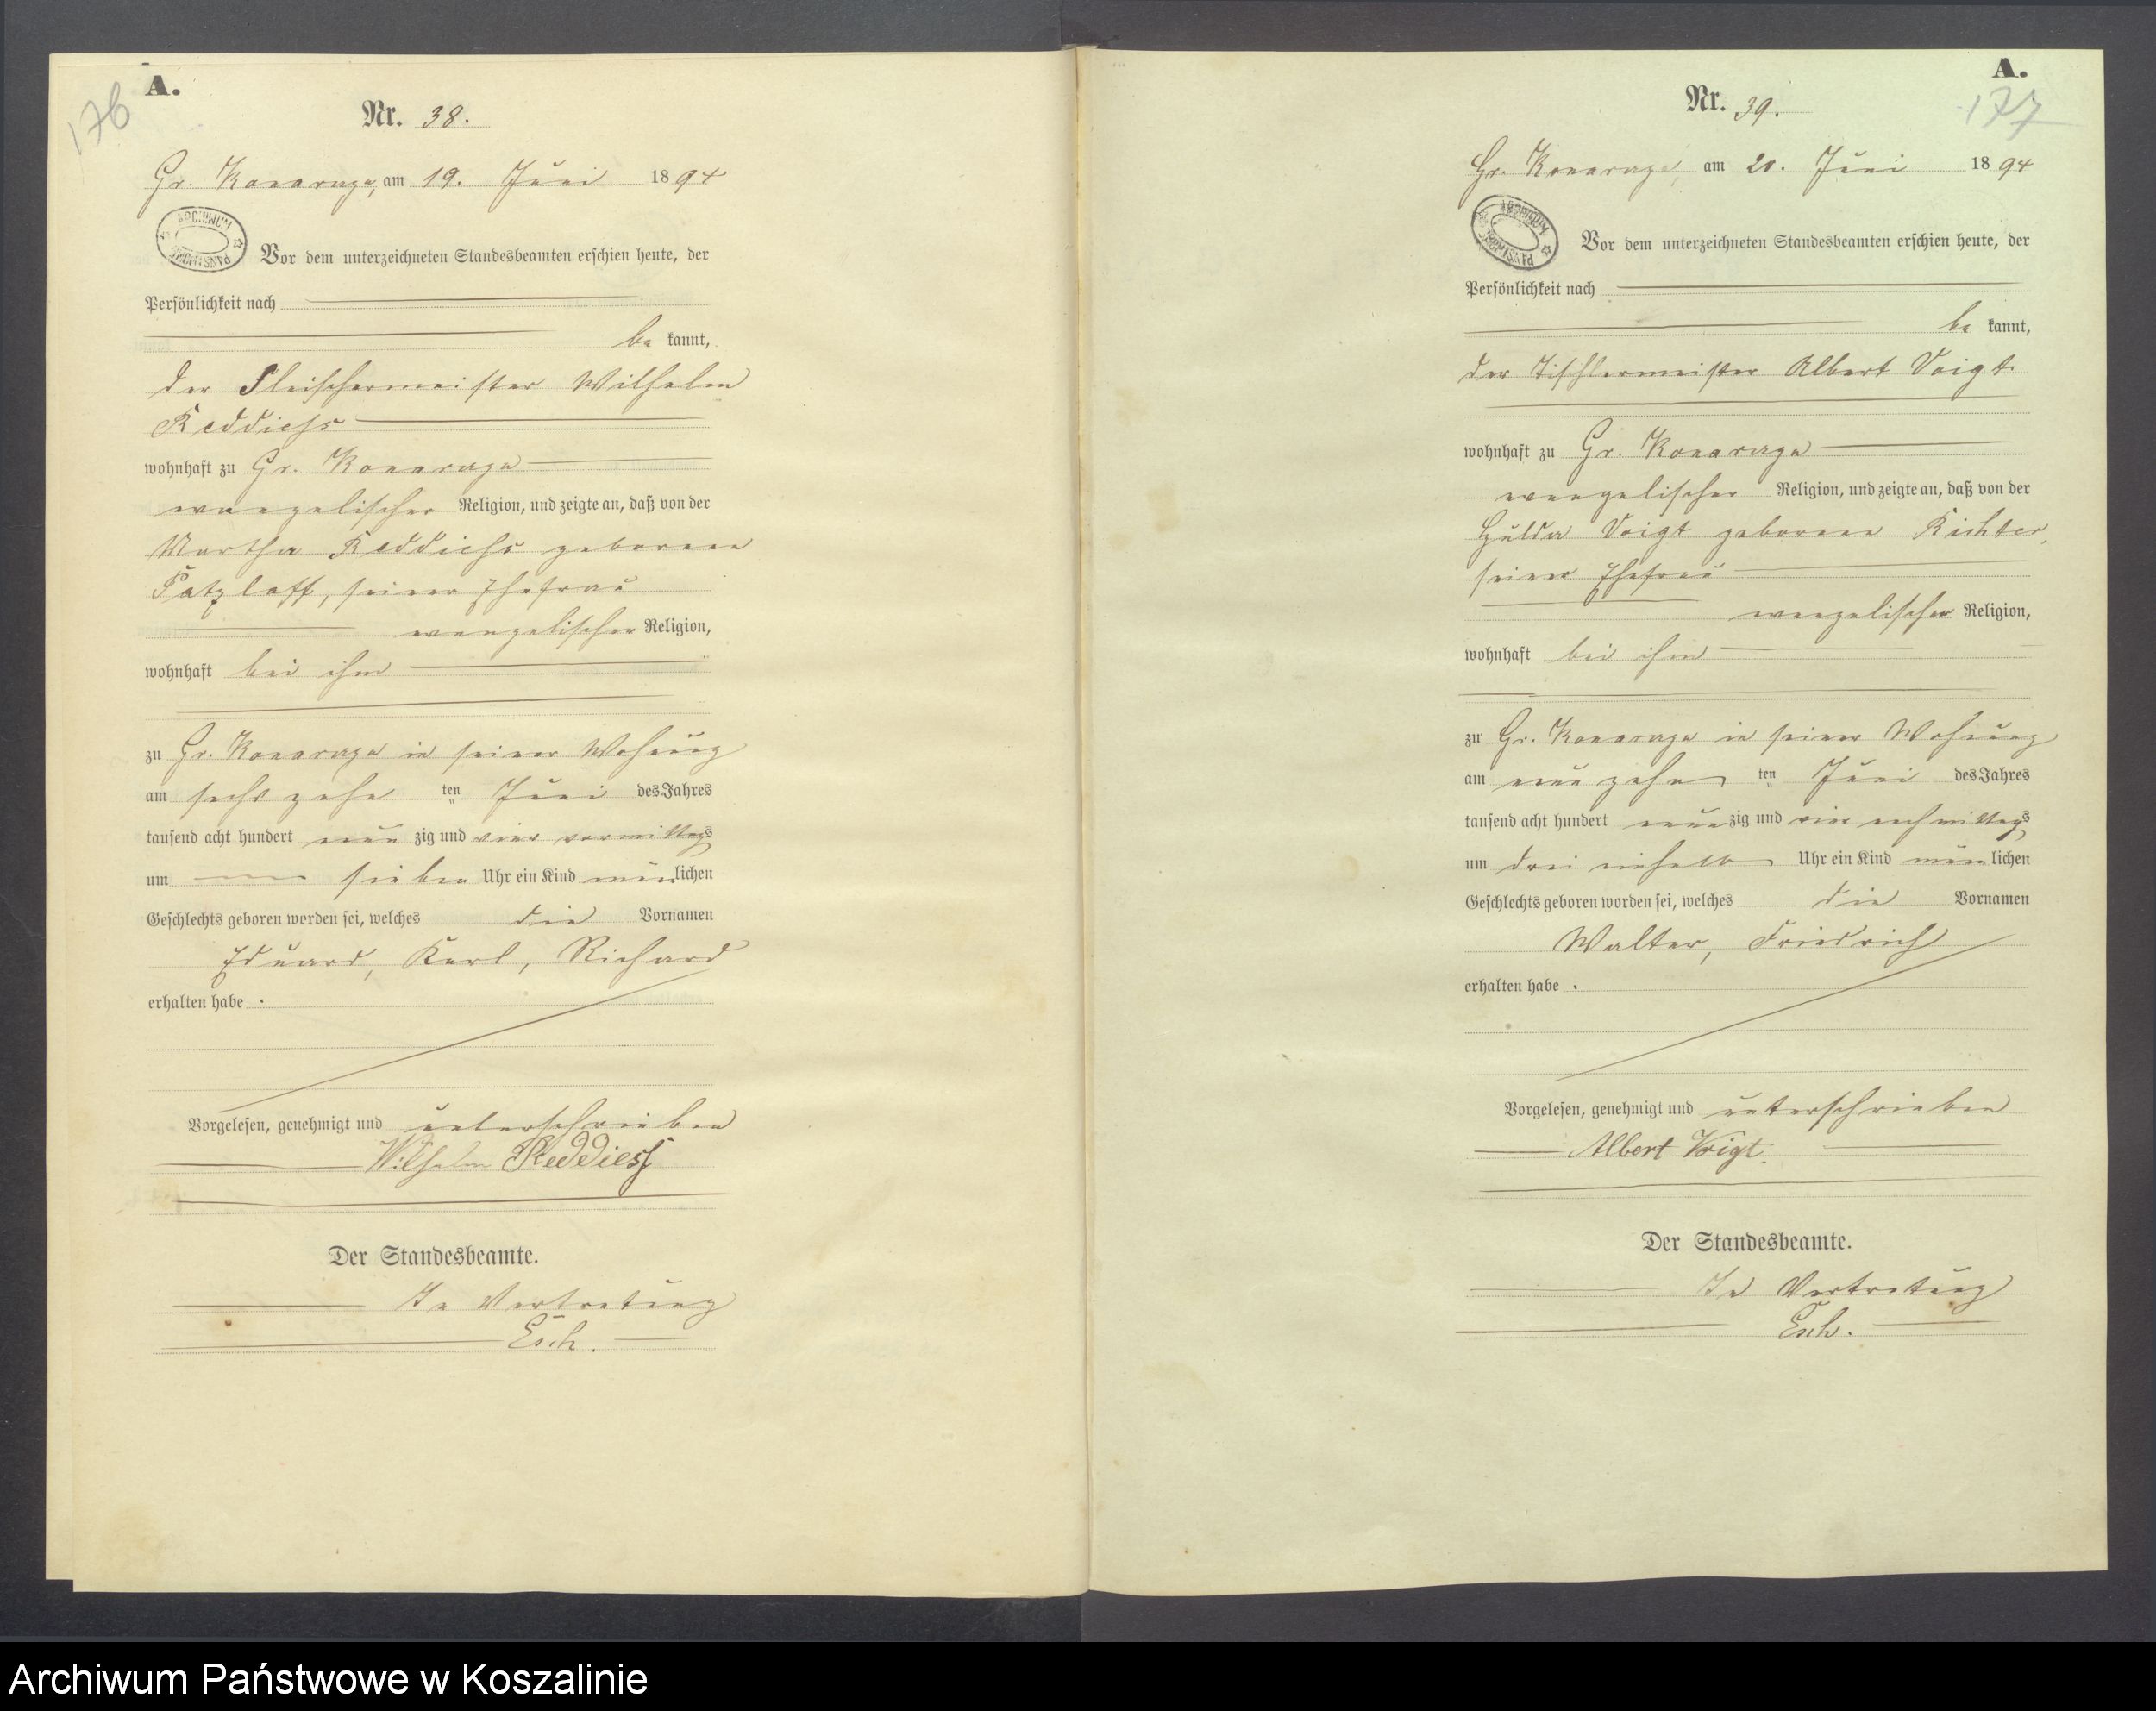 A.
176
Nr. 38.
Gr. Konarzyn, am 19. Juni 1894
ARCHIWUM PAŃSTWOWE
Vor dem unterzeichneten Standesbeamten erschien heute, der
Persönlichkeit nach
be kannt,
der Fleischermeister Wilhelm
Reddiess
wohnhaft zu Gr.
evangelischer Religion, und zeigte an, daß von der
Martha Reddiess geborene
Ratzlaff, seiner Ehefrau
evangelischer Religion,
wohnhaft bei ihm
zu Gr. in seiner Wohnung
am sechszehn ten Juni des Jahres
tausend acht hundert neun zig und vier vormittags
um sieben Uhr ein Kind mänlichen
Geschlechts geboren worden sei, welches die Vornamen
Eduard, Karl, Richard
erhalten habe .
Vorgelesen, genehmigt und unterschrieben
Wilhelm Reddiess
Der Standesbeamte.
In Vertretung
Esch.
A.
177
Nr. 39.
Gr. am 20. Juni 1894
ARCHIWUM PAŃSTWOWE
Vor dem unterzeichneten Standesbeamten erschien heute, der
Persönlichkeit nach
be kannt,
der Tischlermeister Albert Voigt.
wohnhaft zu Gr.
evangelischer Religion, und zeigte an, daß von der
Hulda Voigt geborene Richter,
seiner Ehefrau
evangelischer Religion,
wohnhaft bei ihm
zu Gr. in seiner Wohnung
am neunzehn ten Juni des Jahres
tausend acht hundert neun zig und vier nachmittags
um drei einhalb Uhr ein Kind mänlichen
Geschlechts geboren worden sei, welches die Vornamen
Walter, Friedrich
erhalten habe .
Vorgelesen, genehmigt und unterschrieben
Albert Voigt.
Der Standesbeamte.
In Vertretung
Esch.
Archiwum Państwowe w Koszalinie